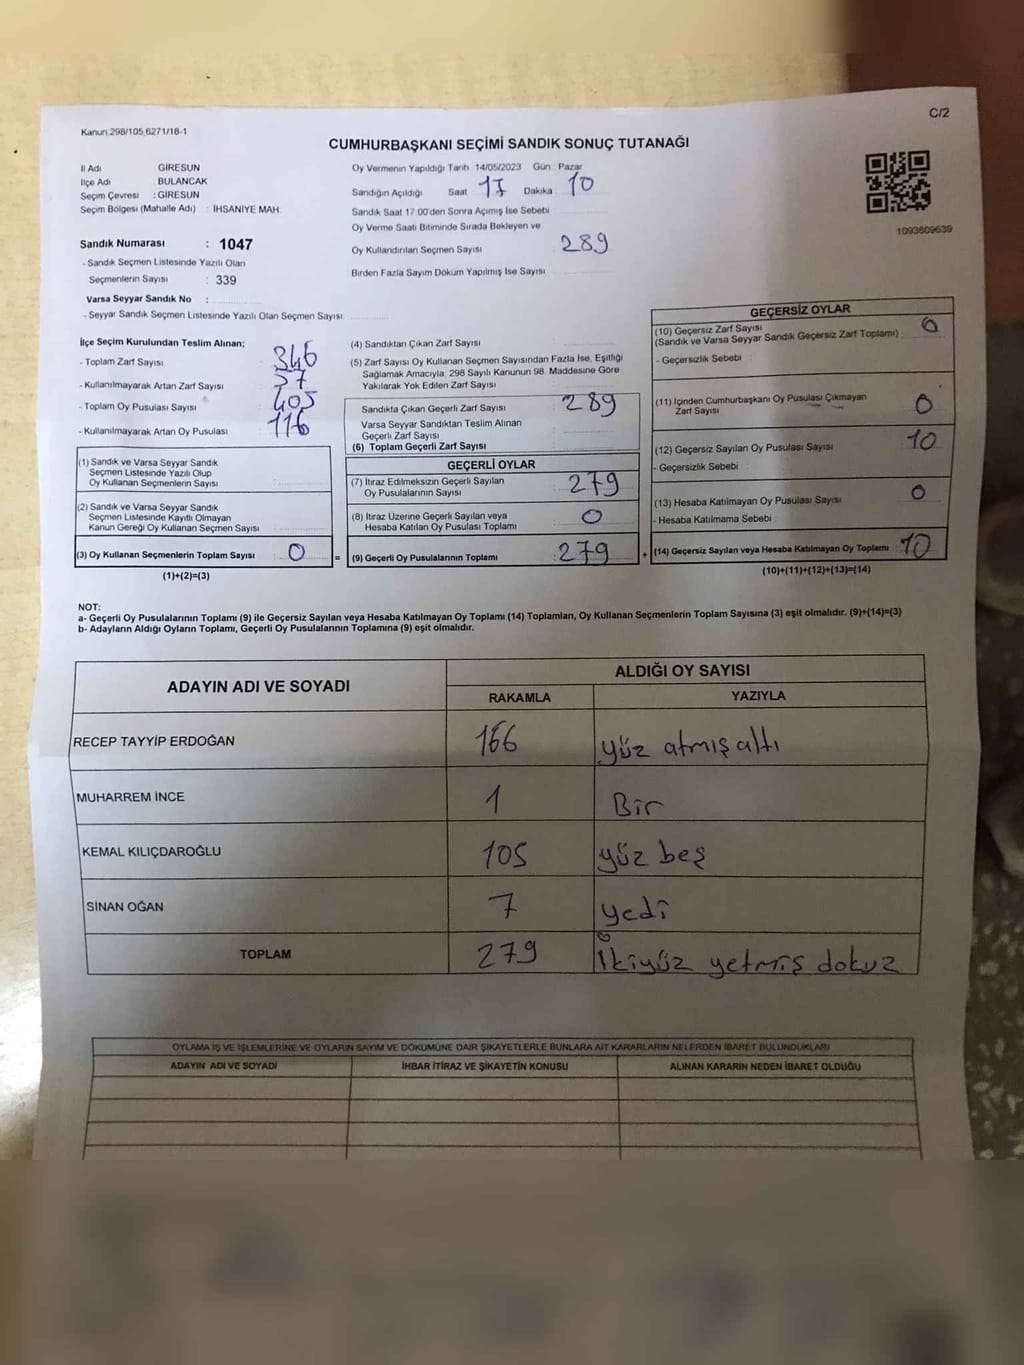 C/2
Kanun.298/105,6271/18-1
CUMHURBAŞKANI SEÇİMİ SANDIK SONUÇ TUTANAĞI
İl Adı GİRESUN
İlçe Adı BULANCAK
Seçim Çevresi : GİRESUN
Seçim Bölgesi (Mahalle Adı) : İHSANİYE MAH.
Sandık Numarası : 1047
- Sandık Seçmen Listesinde Yazılı Olan
Seçmenlerin Sayısı : 339
Varsa Seyyar Sandık No :
- Seyyar Sandık Seçmen Listesinde Yazılı Olan Seçmen Sayısı:
Oy Vermenin Yapıldığı Tarih :14/05/2023 Gün : Pazar
Sandığın Açıldığı Saat 17 Dakika 10
Sandık Saat 17:00'den Sonra Açımış İse Sebebi
Oy Verme Saati Bitiminde Sırada Bekleyen ve
Oy Kullandırılan Seçmen Sayısı 289
Birden Fazla Sayım Döküm Yapılmış İse Sayısı
1093809639
İlçe Seçim Kurulundan Teslim Alınan;
- Toplam Zarf Sayısı : 346
- Kullanılmayarak Artan Zarf Sayısı : 57
- Toplam Oy Pusulası Sayısı : 405
- Kullanılmayarak Artan Oy Pusulası : 116
(1) Sandık ve Varsa Seyyar Sandık
Seçmen Listesinde Yazılı Olup
Oy Kullanan Seçmenlerin Sayısı
(2) Sandık ve Varsa Seyyar Sandık
Seçmen Listesinde Kayıtlı Olmayan
Kanun Gereği Oy Kullanan Seçmen Sayısı
(3) Oy Kullanan Seçmenlerin Toplam Sayısı : 0 =
(1)+(2)=(3)
(4) Sandıktan Çıkan Zarf Sayısı
(5) Zarf Sayısı Oy Kullanan Seçmen Sayısından Fazla İse, Eşitliği
Sağlamak Amacıyla; 298 Sayılı Kanunun 98. Maddesine Göre
Yakılarak Yok Edilen Zarf Sayısı
Sandıkta Çıkan Geçerli Zarf Sayısı : 289
Varsa Seyyar Sandıktan Teslim Alınan
Geçerli Zarf Sayısı
(6) Toplam Geçerli Zarf Sayısı
GEÇERLİ OYLAR
(7) İtiraz Edilmeksizin Geçerli Sayılan
Oy Pusulalarının Sayısı : 279
(8) İtiraz Üzerine Geçerli Sayılan veya
Hesaba Katılan Oy Pusulası Toplamı : 0
(9) Geçerli Oy Pusulalarının Toplamı : 279 +
GEÇERSİZ OYLAR
(10) Geçersiz Zarf Sayısı 0
(Sandık ve Varsa Seyyar Sandık Geçersiz Zarf Toplamı)
- Geçersizlik Sebebi :
(11) İçinden Cumhurbaşkanı Oy Pusulası Çıkmayan
Zarf Sayısı 0
(12) Geçersiz Sayılan Oy Pusulası Sayısı 10
- Geçersizlik Sebebi
(13) Hesaba Katılmayan Oy Pusulası Sayısı 0
- Hesaba Katılmama Sebebi :
(14) Geçersiz Sayılan veya Hesaba Katılmayan Oy Toplamı : 10
(10)+(11)+(12)+(13)=(14)
NOT:
a- Geçerli Oy Pusulalarının Toplamı (9) ile Geçersiz Sayılan veya Hesaba Katılmayan Oy Toplamı (14) Toplamları, Oy Kullanan Seçmenlerin Toplam Sayısına (3) eşit olmalıdır. (9)+(14)=(3)
b- Adayların Aldığı Oyların Toplamı, Geçerli Oy Pusulalarının Toplamına (9) eşit olmalıdır.
ADAYIN ADI VE SOYADI ALDIĞI OY SAYISI
RAKAMLA YAZIYLA
RECEP TAYYİP ERDOĞAN 166 yüz atmış altı
MUHARREM İNCE 1 Bir
KEMAL KILIÇDAROĞLU 105 yüz beş
SİNAN OĞAN 7 yedi
TOPLAM 279 İkiyüz yetmiş dokuz
OYLAMA İŞ VE İŞLEMLERİNE VE OYLARIN SAYIM VE DÖKÜMÜNE DAİR ŞİKAYETLERLE BUNLARA AİT KARARLARIN NELERDEN İBARET BULUNDUKLARI
ADAYIN ADI VE SOYADI İHBAR İTİRAZ VE ŞİKAYETİN KONUSU ALINAN KARARIN NEDEN İBARET OLDUĞU